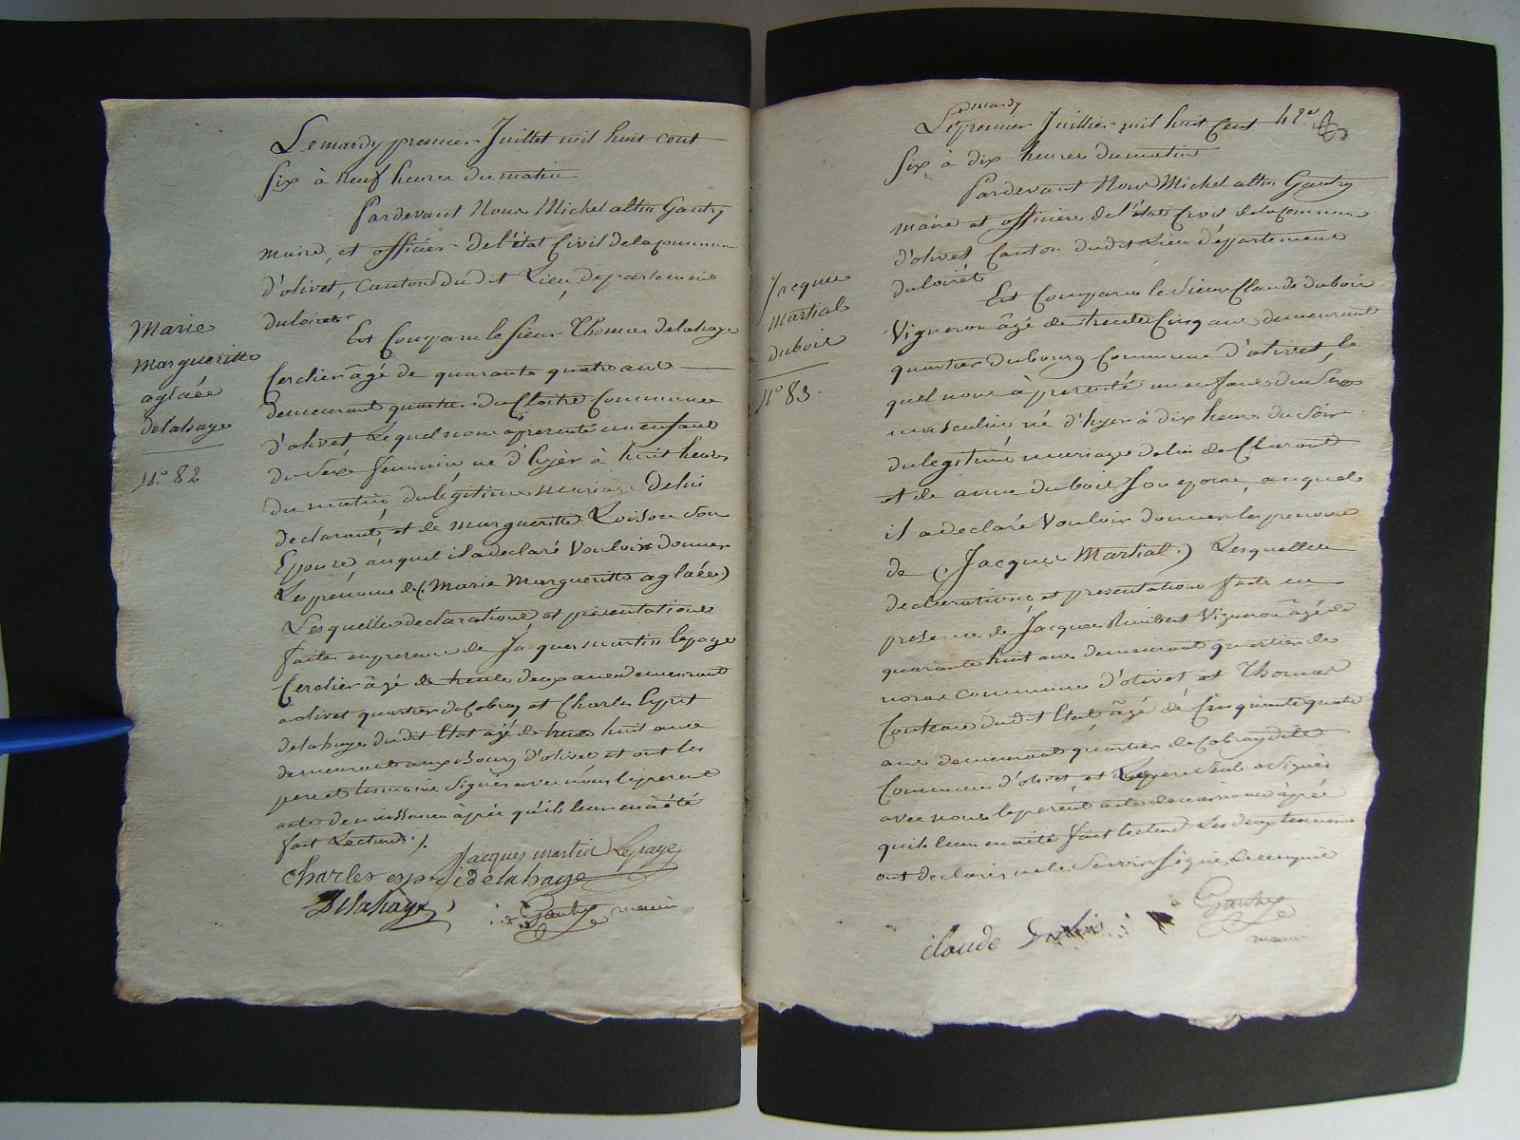 Le mardy premier Juillet mil huit cent
six à neuf heures du matin
Pardevant Nous Michel altin Gautry
maire, et officier de l'état Civil de la commune
d'olivet, Canton du dit Lieu, departement
du loiret
Est Comparu le sieur Thomas delahaye
Cerclier âgé de quarante quatre ans
demeurant quartier du Cloitre Commune
d'olivet Lequel nous a presenté un enfant
du Sexe feminin né d'hyer à huit heures
du matin, du légitime mariage de lui
declarant, et de margueritte Loison son
Epouse, auquel il a declaré Vouloir donner
Les prenoms de (Marie Margueritte aglaée)
Lesquelles declarations et présentations
faites en presence de Jacques martin lepage
Cerclier âgé de trente deux ans demeurant
a olivet quartier de Cobray et Charles Esprit
delahaye du dit Etat âgé de trente huit ans
demeurant aux Bourg d'olivet et ont les
pere et temoins Signés avec nous le present
acte de naissance après qu'ils leur en a été
fait Lecture ./.
Jacques martin Lepage
charles esprit delahaye
Delahaye
Gautry maire
Marie
Margueritte
aglaée
delahaye
N.° 82
mardy
Le premier Juillier mil huit Cent 42e
Six à dix heures du matin
Pardevant Nous Michel altin Gautry
maire et officier de l'état Civil de la Commune
d'olivet Canton du dit Lieu département
du loiret
Est Comparu le Sieur Claude dubois
Vigneron âgé de trente Cinq ans demeurant
quartier du bourg Commune d'olivet, le
quel nous à presenté un enfant du Sexe
masculin né d'hyer à dix heures du Soir
du legitime mariage de lui declarant
et de anne dubois Son epouse, auquel
il a declaré Vouloir donner les prenoms
de (Jacques Martial.) Lesquelles
declarations et presentations faite en
presence de Jacques Rimbert Vigneron âgé de
quarante huit ans demeurant quartier de
commune d'olivet et Thomas
Couteau du dit Etat âgé de Cinquante quatre
ans demeurant quartier de Cobray dite
Commune d'olivet et Le pere Seul a Signé
avec nous le present acte de naissance après
qu'ils leur en a été fait lecture Les deux temoins
ont declarés ne le Savoir Signe de ce enquis
Gautry
maire
claude
Jacque
Martial
dubois
N.° 83.